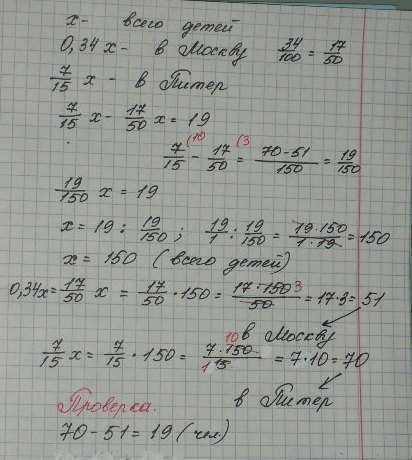 x - всего детей
0,34x - в Москву 34/100 = 17/50
7/15 x - в Питер
7/15 x - 17/50 x = 19
7/15 (10 - 17/50 (3 = 70-51/150 = 19/150
19/150 x = 19
x = 19 : 19/150 ; 19/1 : 19/150 = 19·150/1·19 = 150
x = 150 (всего детей)
0,34x = 17/50 x = 17/50 · 150 = 17·150 3/50 = 17·3 = 51
в Москву
7/15 x = 7/15 · 150 = 7·150 10/15 1 = 7·10 = 70
Проверка. в Питер
70-51 = 19 (чел.)